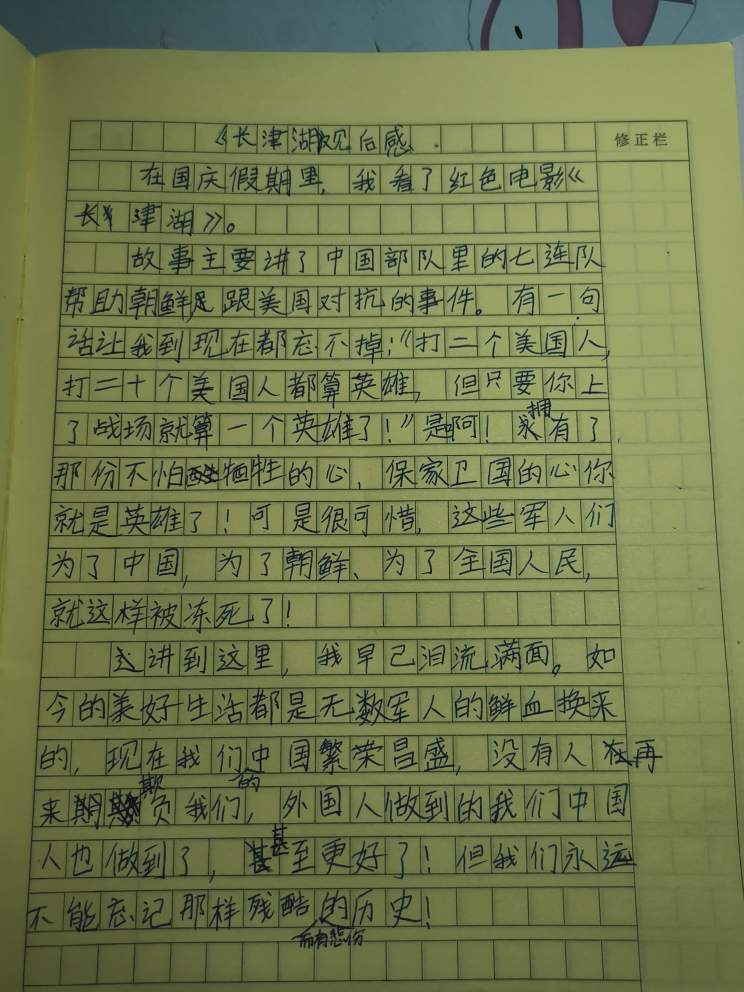 《长津湖》观后感
修正栏
在国庆假期里，我看了红色电影《
长津湖》。
故事主要讲了中国部队里的七连队
帮助朝鲜跟美国对抗的事件。有一句
话让我到现在都忘不掉：“打二个美国人，
打二十个美国人都算英雄，但只要你上
了战场就算一个英雄了！”是啊！拥有了
那份不怕牺牲的心、保家卫国的心你
就是英雄了！可是很可惜，这些军人们
为了中国，为了朝鲜、为了全国人民，
就这样被冻死了！
讲到这里，我早已泪流满面。如
今的美好生活都是无数军人的鲜血换来
的，现在我们中国繁荣昌盛，没有人再
来欺负我们的，外国人做到的我们中国
人也做到了，甚至更好了！但我们永远
不能忘记那样残酷而有悲伤的历史！